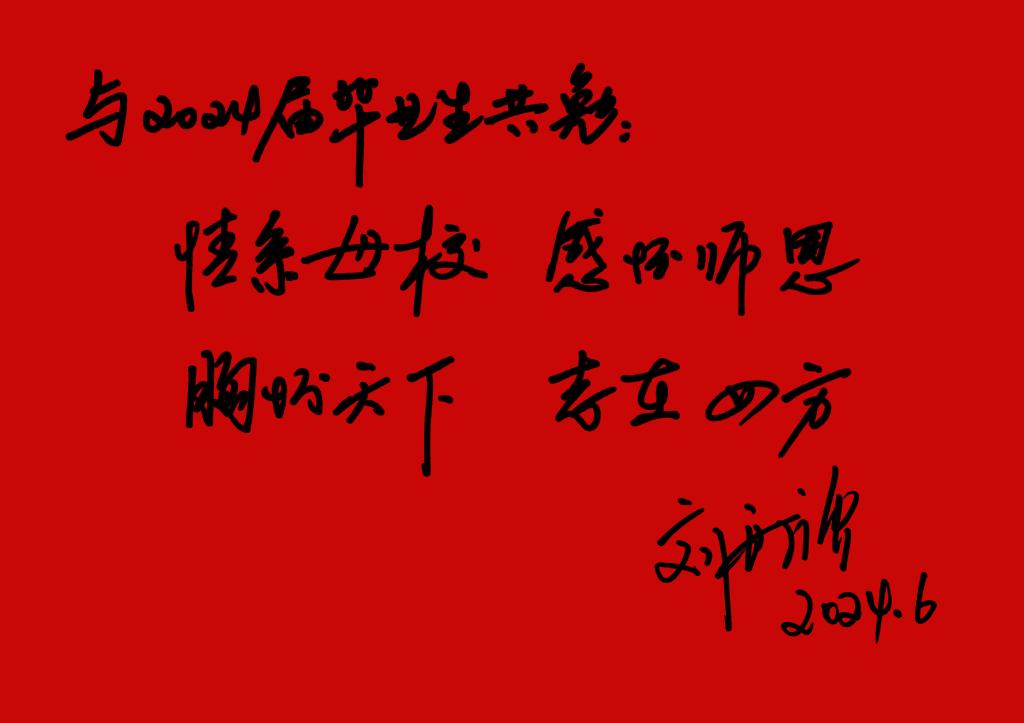 与2024届毕业生共勉:
情系母校 感怀师恩
胸怀天下 志在四方
刘
2024.6